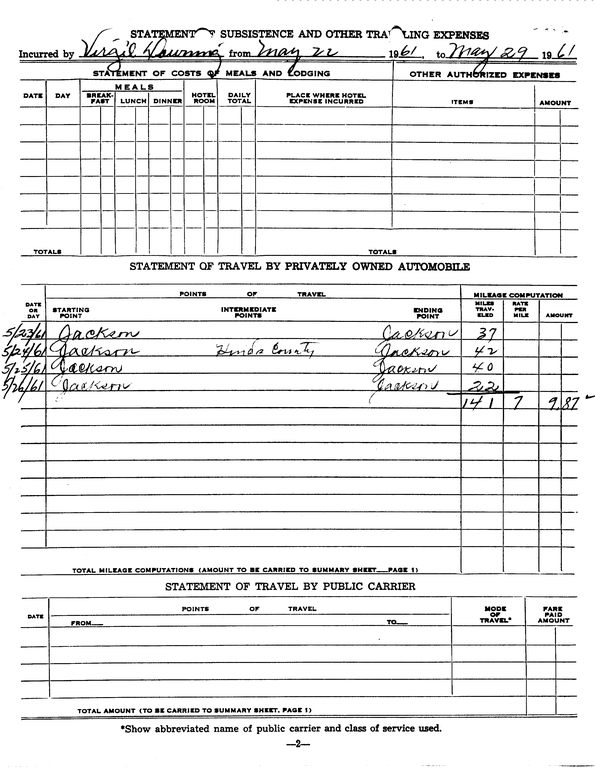 STATEMENT OF SUBSISTENCE AND OTHER TRAVELING EXPENSES
Incurred by Virgil Downing from May 22 1961, to May 29 1961
STATEMENT OF COSTS OF MEALS AND LODGING OTHER AUTHORIZED EXPENSES
DATE DAY MEALS BREAK-FAST LUNCH DINNER HOTEL ROOM DAILY TOTAL PLACE WHERE HOTEL EXPENSE INCURRED ITEMS AMOUNT
TOTALS TOTALS
STATEMENT OF TRAVEL BY PRIVATELY OWNED AUTOMOBILE
POINTS OF TRAVEL MILEAGE COMPUTATION
DATE OR DAY STARTING POINT INTERMEDIATE POINTS ENDING POINT MILES TRAV-ELED RATE PER MILE AMOUNT
5/23/61 Jackson Jackson 37
5/24/61 Jackson Hinds County Jackson 42
5/25/61 Jackson Jackson 40
5/26/61 Jackson Jackson 22
141 7 9.87
TOTAL MILEAGE COMPUTATIONS (AMOUNT TO BE CARRIED TO SUMMARY SHEET—PAGE 1)
STATEMENT OF TRAVEL BY PUBLIC CARRIER
DATE POINTS OF TRAVEL MODE OF TRAVEL* FARE PAID AMOUNT
FROM— TO—
TOTAL AMOUNT (TO BE CARRIED TO SUMMARY SHEET, PAGE 1)
*Show abbreviated name of public carrier and class of service used.
—2—